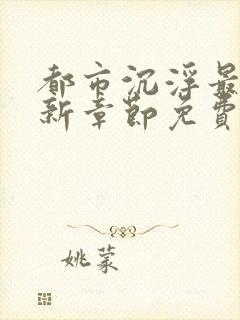 都市沉浮最
新章節免費
姚蒙